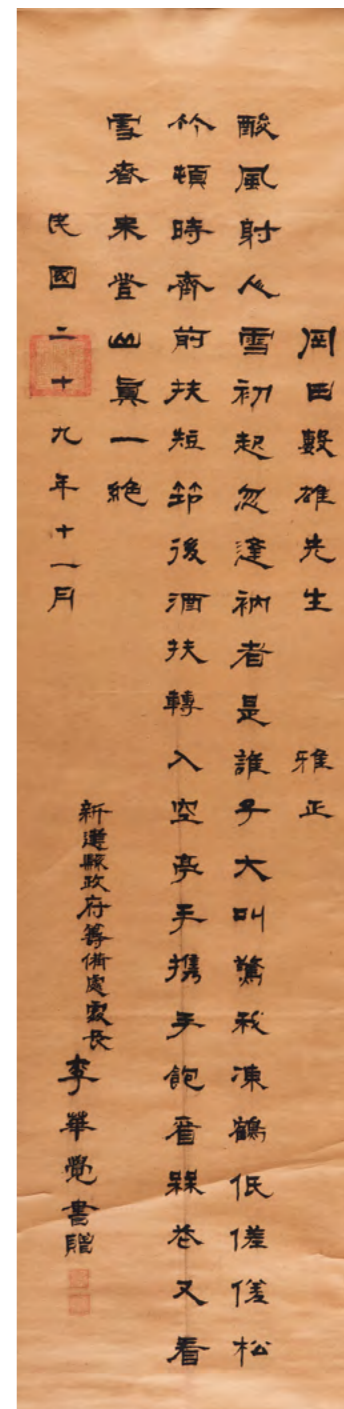 岡田雄先生 雅正
酸風射人雪初起忽衲者是誰子大叫驚凍鶴低松
竹頓時齊前扶短笻後酒扶轉入空亭手攜手飽槑花又看
雪春來登山眞一絕
民國二十九年十一月
新縣政府籌備處處長
李華覺書贈